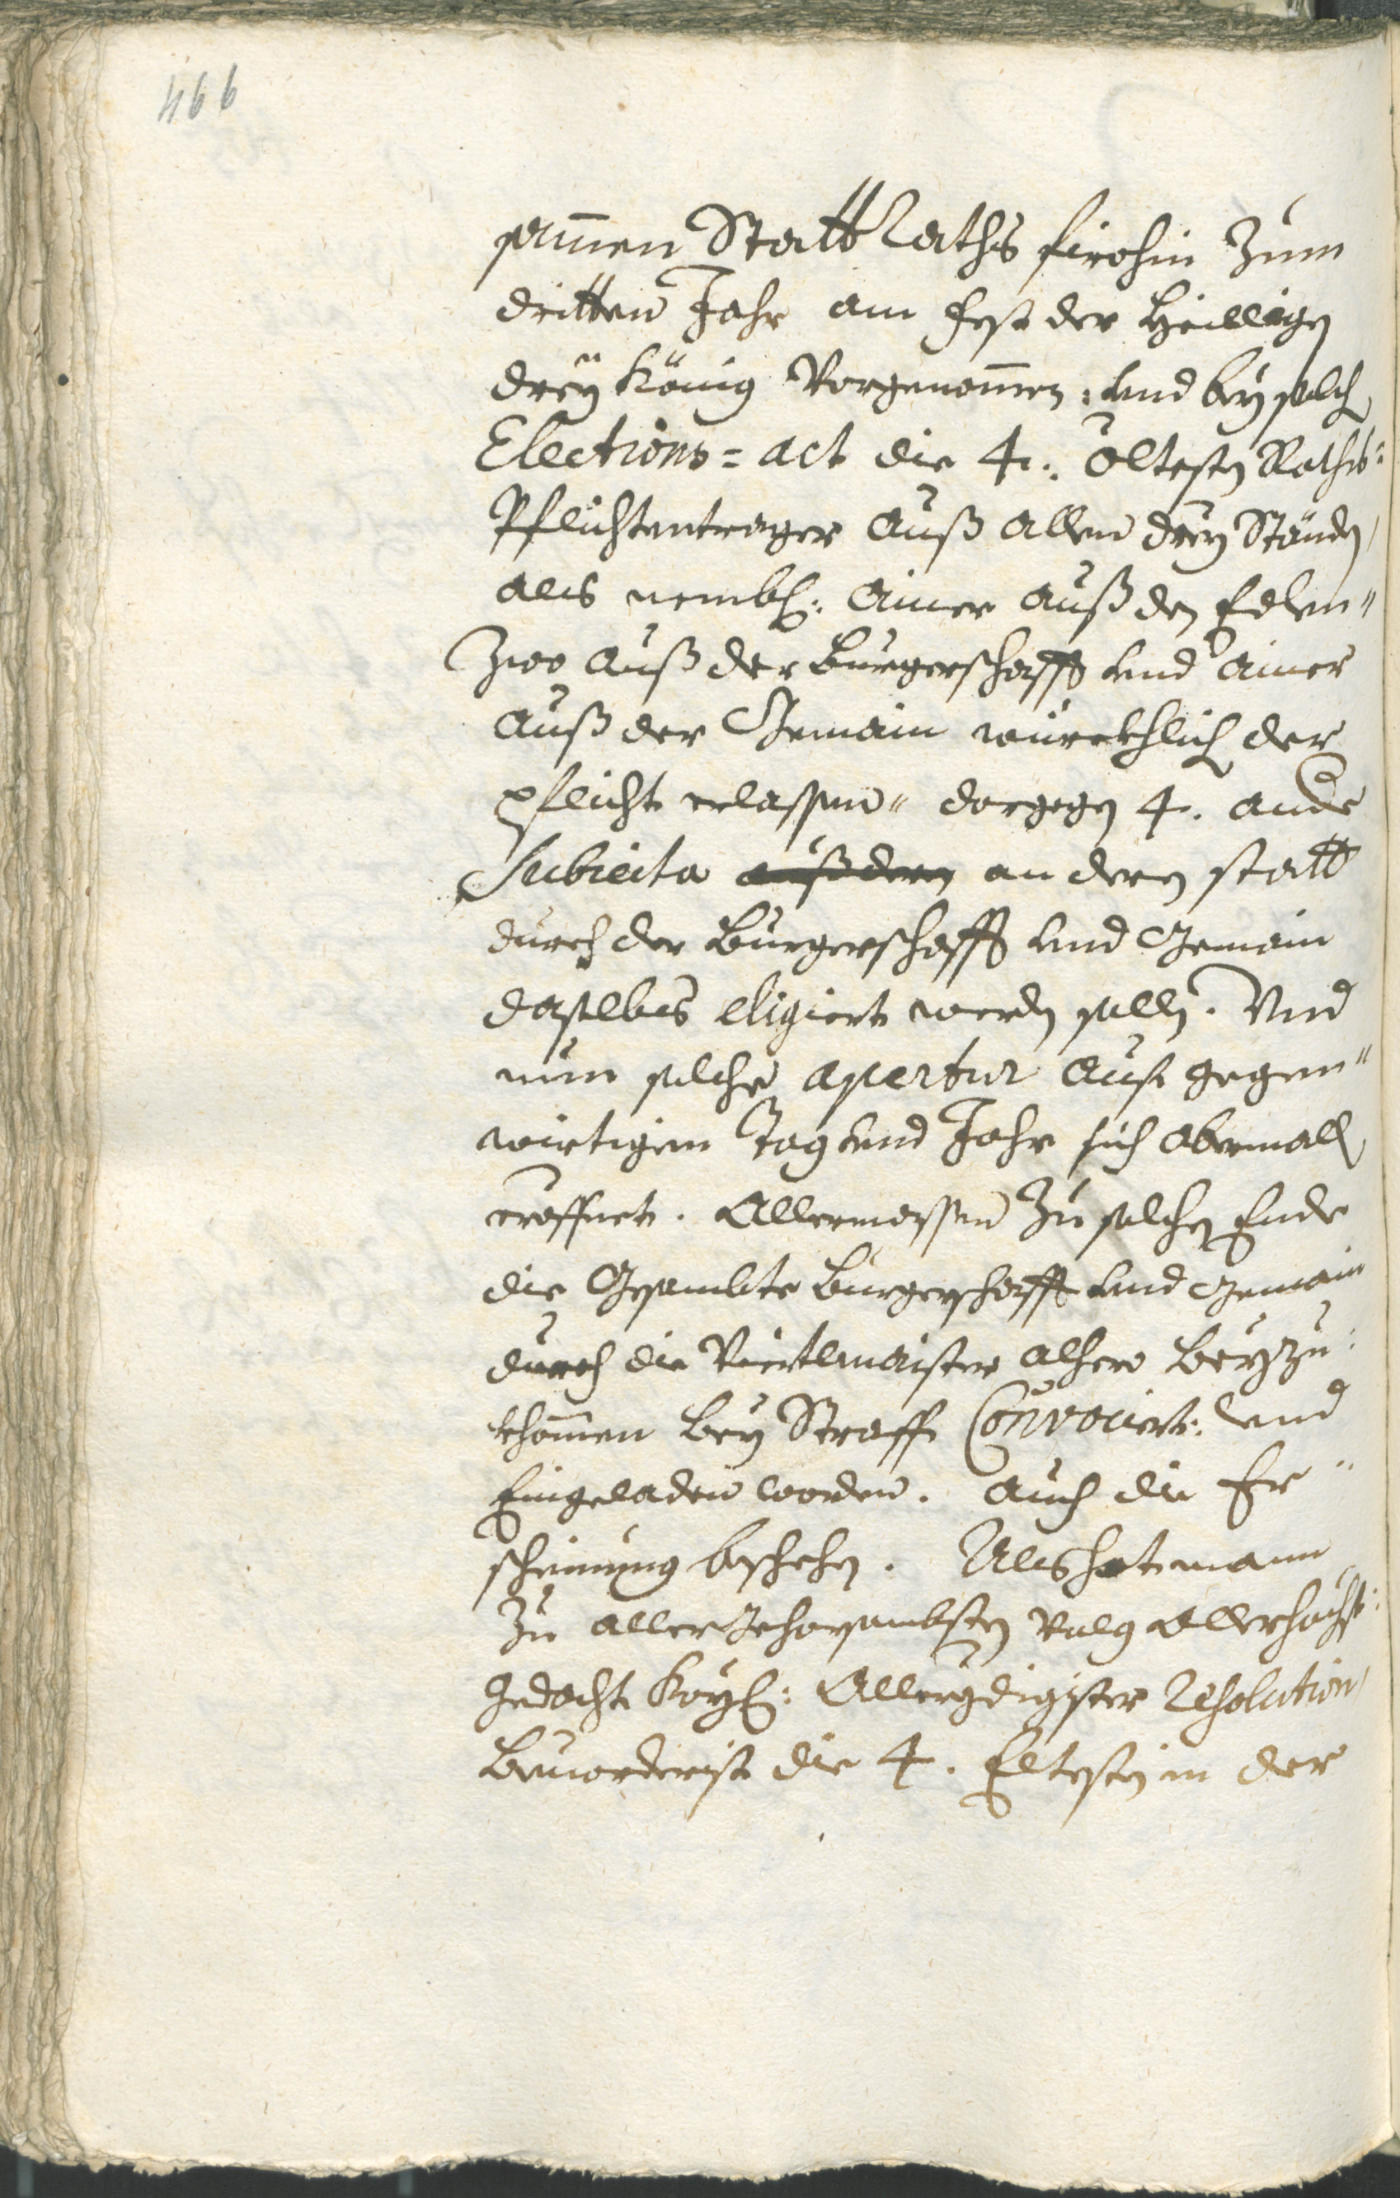 466
samen Statt Raths firohin Zum
dritten Jahr am fest der Heilligen
dreÿ König Vorgenommen: vnd beÿ solch
Elections=act die 4. Öltesten Raths=
Pflichtentrager Auß Allen dreÿ Ständen,
als nembl: Ainer auß den Edlen"
Zwo Auß der Burgerschafft vnd Ainer
Auß der Gemain würckhlich der
pflicht erlassen" dargegen 4. ande
Subiecta auß deren an deren statt
durch der Burgerschafft vnd Gemain
daselbs eligiert werden sollen. Vnd
nun solche apertur Auf gegen"
wirtigem Tag vnd Jahr sich Abermall
eröffnet. Allermassen Zu solchen Ende
die Gesambte Burgerschafft vnd Gemain
durch die Viertlmaister alhero Beÿzu:
khommen Beÿ Straff Convociert: vnd
Eingeladen worden. Auch die Er"
scheinung beschehen. Als hat mann
Zu aller Gehorsambsten Volg Allerhöchst:
gedacht Kaÿl: Allergdigister Resolution
Beuorderist die 4. Eltesten in der